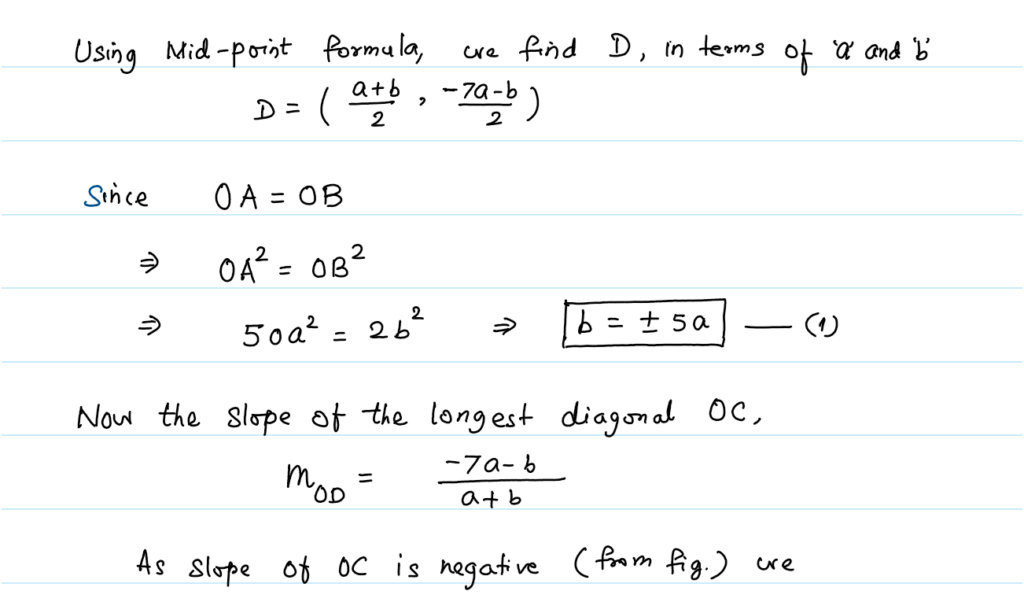 Using Mid-point formula, we find D, in terms of 'a' and 'b'
D = ( a+b/2 , -7a-b/2 )
Since OA = OB
⇒ OA² = OB²
⇒ 50a² = 2b² ⇒ b = ± 5a — (1)
Now the slope of the longest diagonal OC,
m_OD = -7a-b/a+b
As slope of OC is negative (from fig.) we